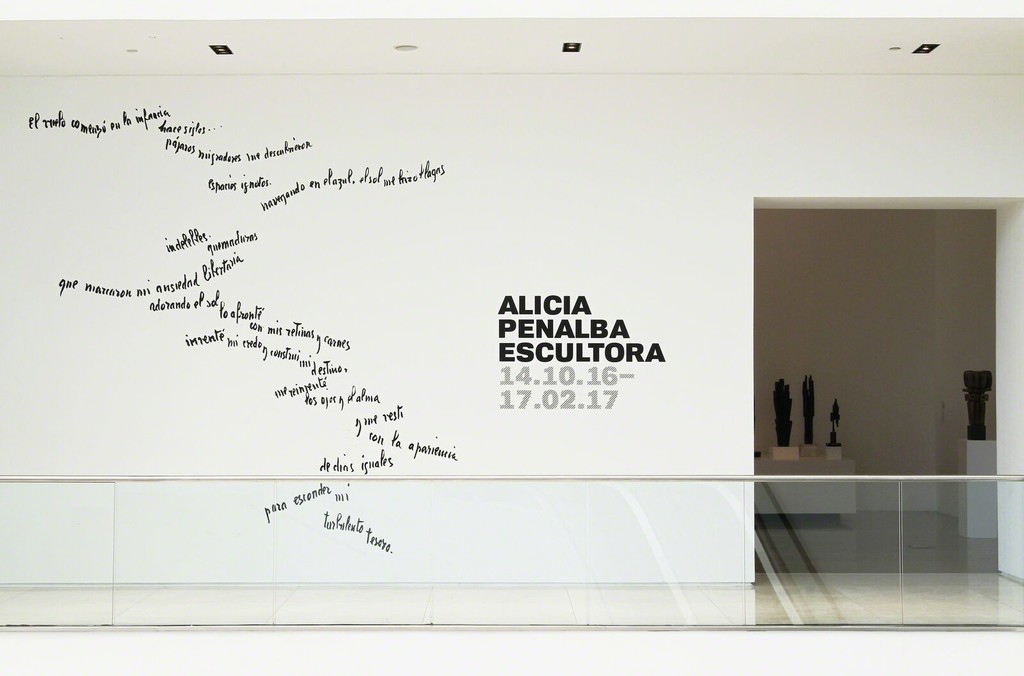 el vuelo comenzó en la infancia
hace siglos...
pájaros migradores me descubrieron
espacios ignotos.
navegando en el azul, el sol me hizo llagas
indelebles.
quemaduras
que marcaron mi ansiedad libertaria
adorando el sol
lo afronté
con mis retinas y carnes
inventé mi credo y construí mi
destino,
me reinventé
los ojos y el alma
y me vestí
con la apariencia
de días iguales
para esconder mi
turbulento tesoro.
ALICIA
PENALBA
ESCULTORA
14.10.16–
17.02.17